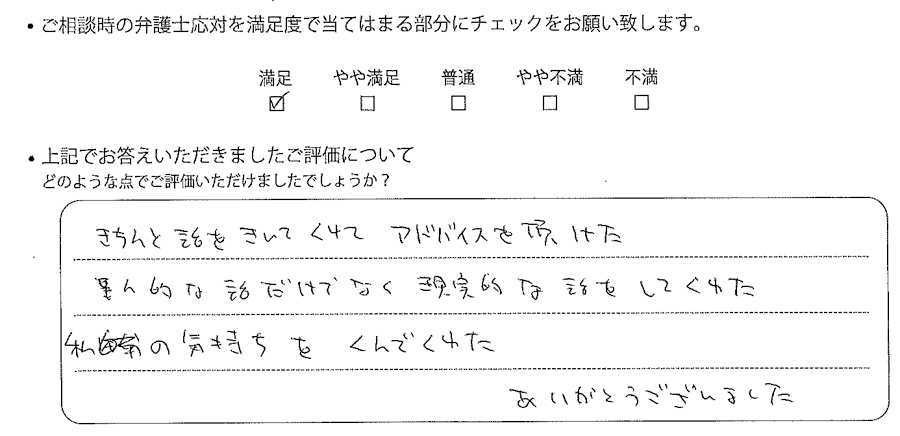 ・ご相談時の弁護士応対を満足度で当てはまる部分にチェックをお願い致します。
満足 やや満足 普通 やや不満 不満
☑ □ □ □ □
・上記でお答えいただきましたご評価について
どのような点でご評価いただけましたでしょうか？
きちんと話をきいてくれて アドバイスを頂けた
的な話だけでなく現実的な話をしてくれた
の気持ちを くんでくれた
ありがとうございました